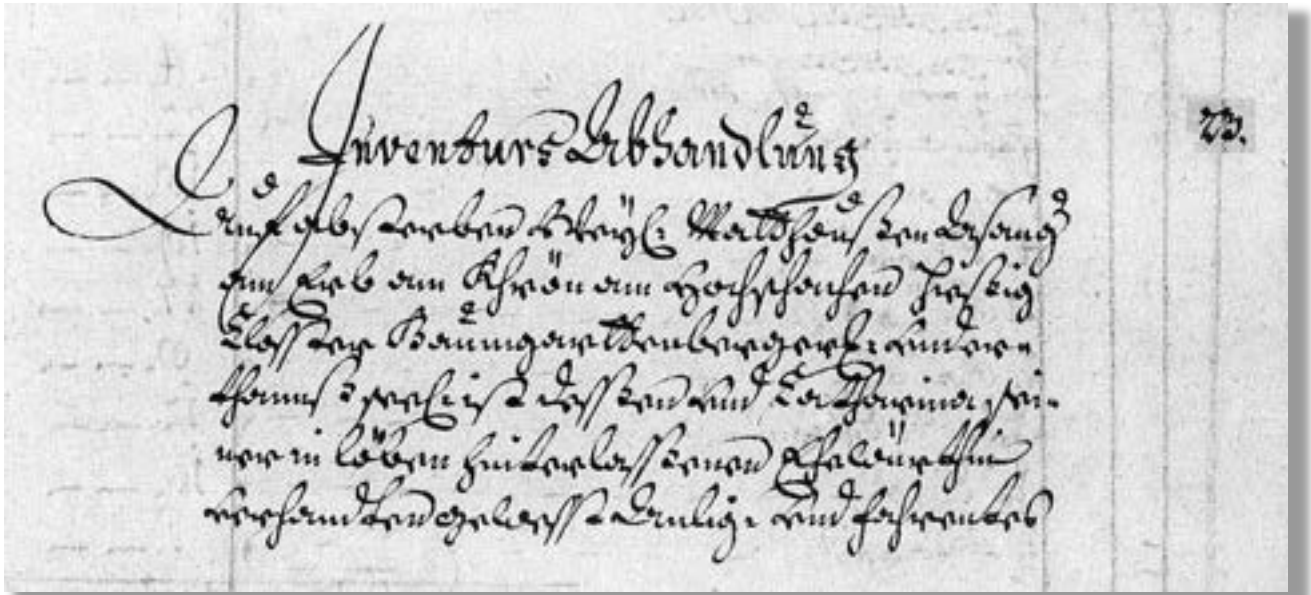 Inventurs Abhandlung
23.
Auf absterben Weyl: Matthäußen Asang
am Erb am Khrön am Hochschachen hiesig
Closster Baumgarttenbergerl: Undter-
thanns seel: ist dessen und Catharina sei-
ner in löben hinterlassenen Ehewürthin
verhandten gewesst Ligent: und fahrentes